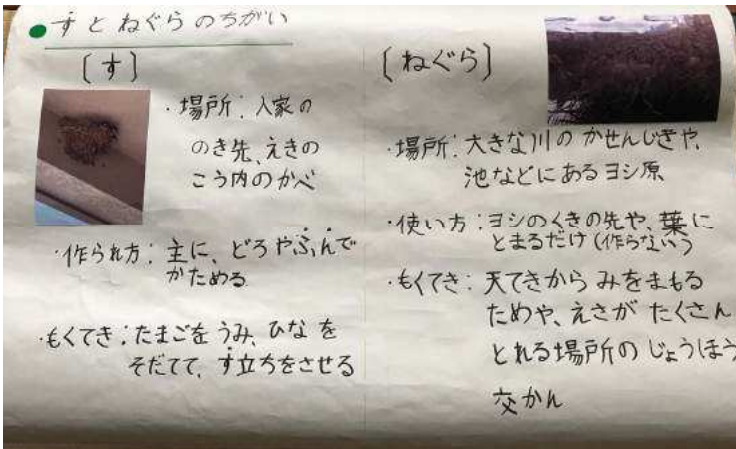 すとねぐらのちがい
〔す〕
・場所：人家の
のき先、えきの
こう内のかべ
・作られ方：主に、どろやふんで
かためる
・もくてき：たまごをうみ、ひなを
そだてて、す立ちをさせる
〔ねぐら〕
・場所：大きな川のかせんじきや、
池などにあるヨシ原
・使い方：ヨシのくきの先や、葉に
とまるだけ(作らない)
・もくてき：天てきからみをまもる
ためや、えさがたくさん
とれる場所のじょうほう
交かん